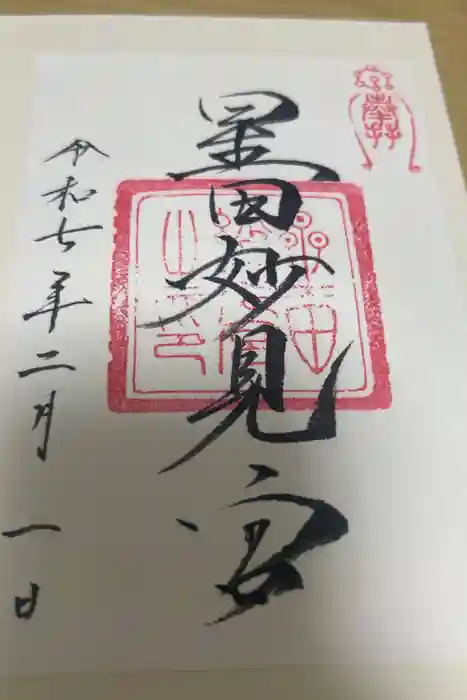 奉拝
星田妙見宮
令和七年二月一日